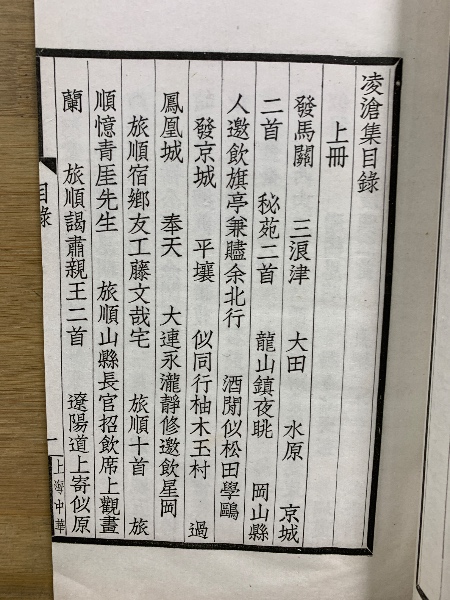 凌滄集目錄
上冊
發馬關 三浪津 大田 水原 京城
二首 秘苑二首 龍山鎮夜眺 岡山縣
人邀飲旗亭兼贐余北行 酒閒似松田學鷗
發京城 平壤 似同行柚木玉村 過
鳳凰城 奉天 大連永瀧靜修邀飲星岡
旅順宿鄉友工藤文哉宅 旅順十首 旅
順憶青厓先生 旅順山縣長官招飲席上觀畫
蘭 旅順謁肅親王二首 遼陽道上寄似原
目錄
一
上海中華